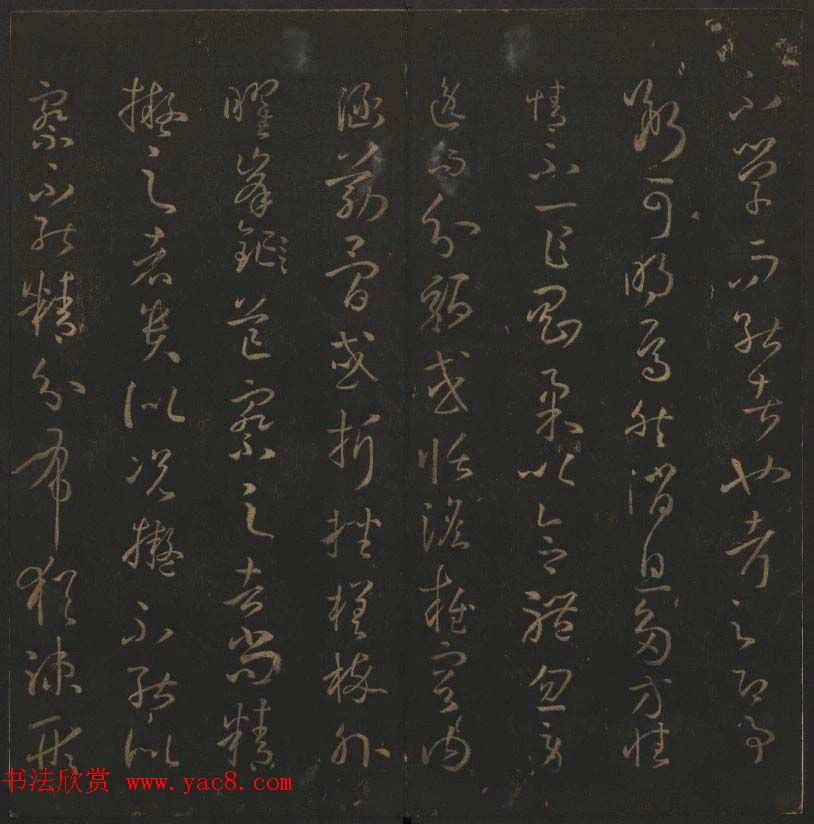 不學而能者也考之即事
斷可明焉然消息多方性
情不一乍剛柔以合體忽勞
逸而分驅或恬澹雍容內
涵筋骨或折挫槎枿外
曜峯鋩芒察之者尚精
擬之者貴似況擬不能似
察不能精分布猶疎形
书法欣赏 www.yac8.com